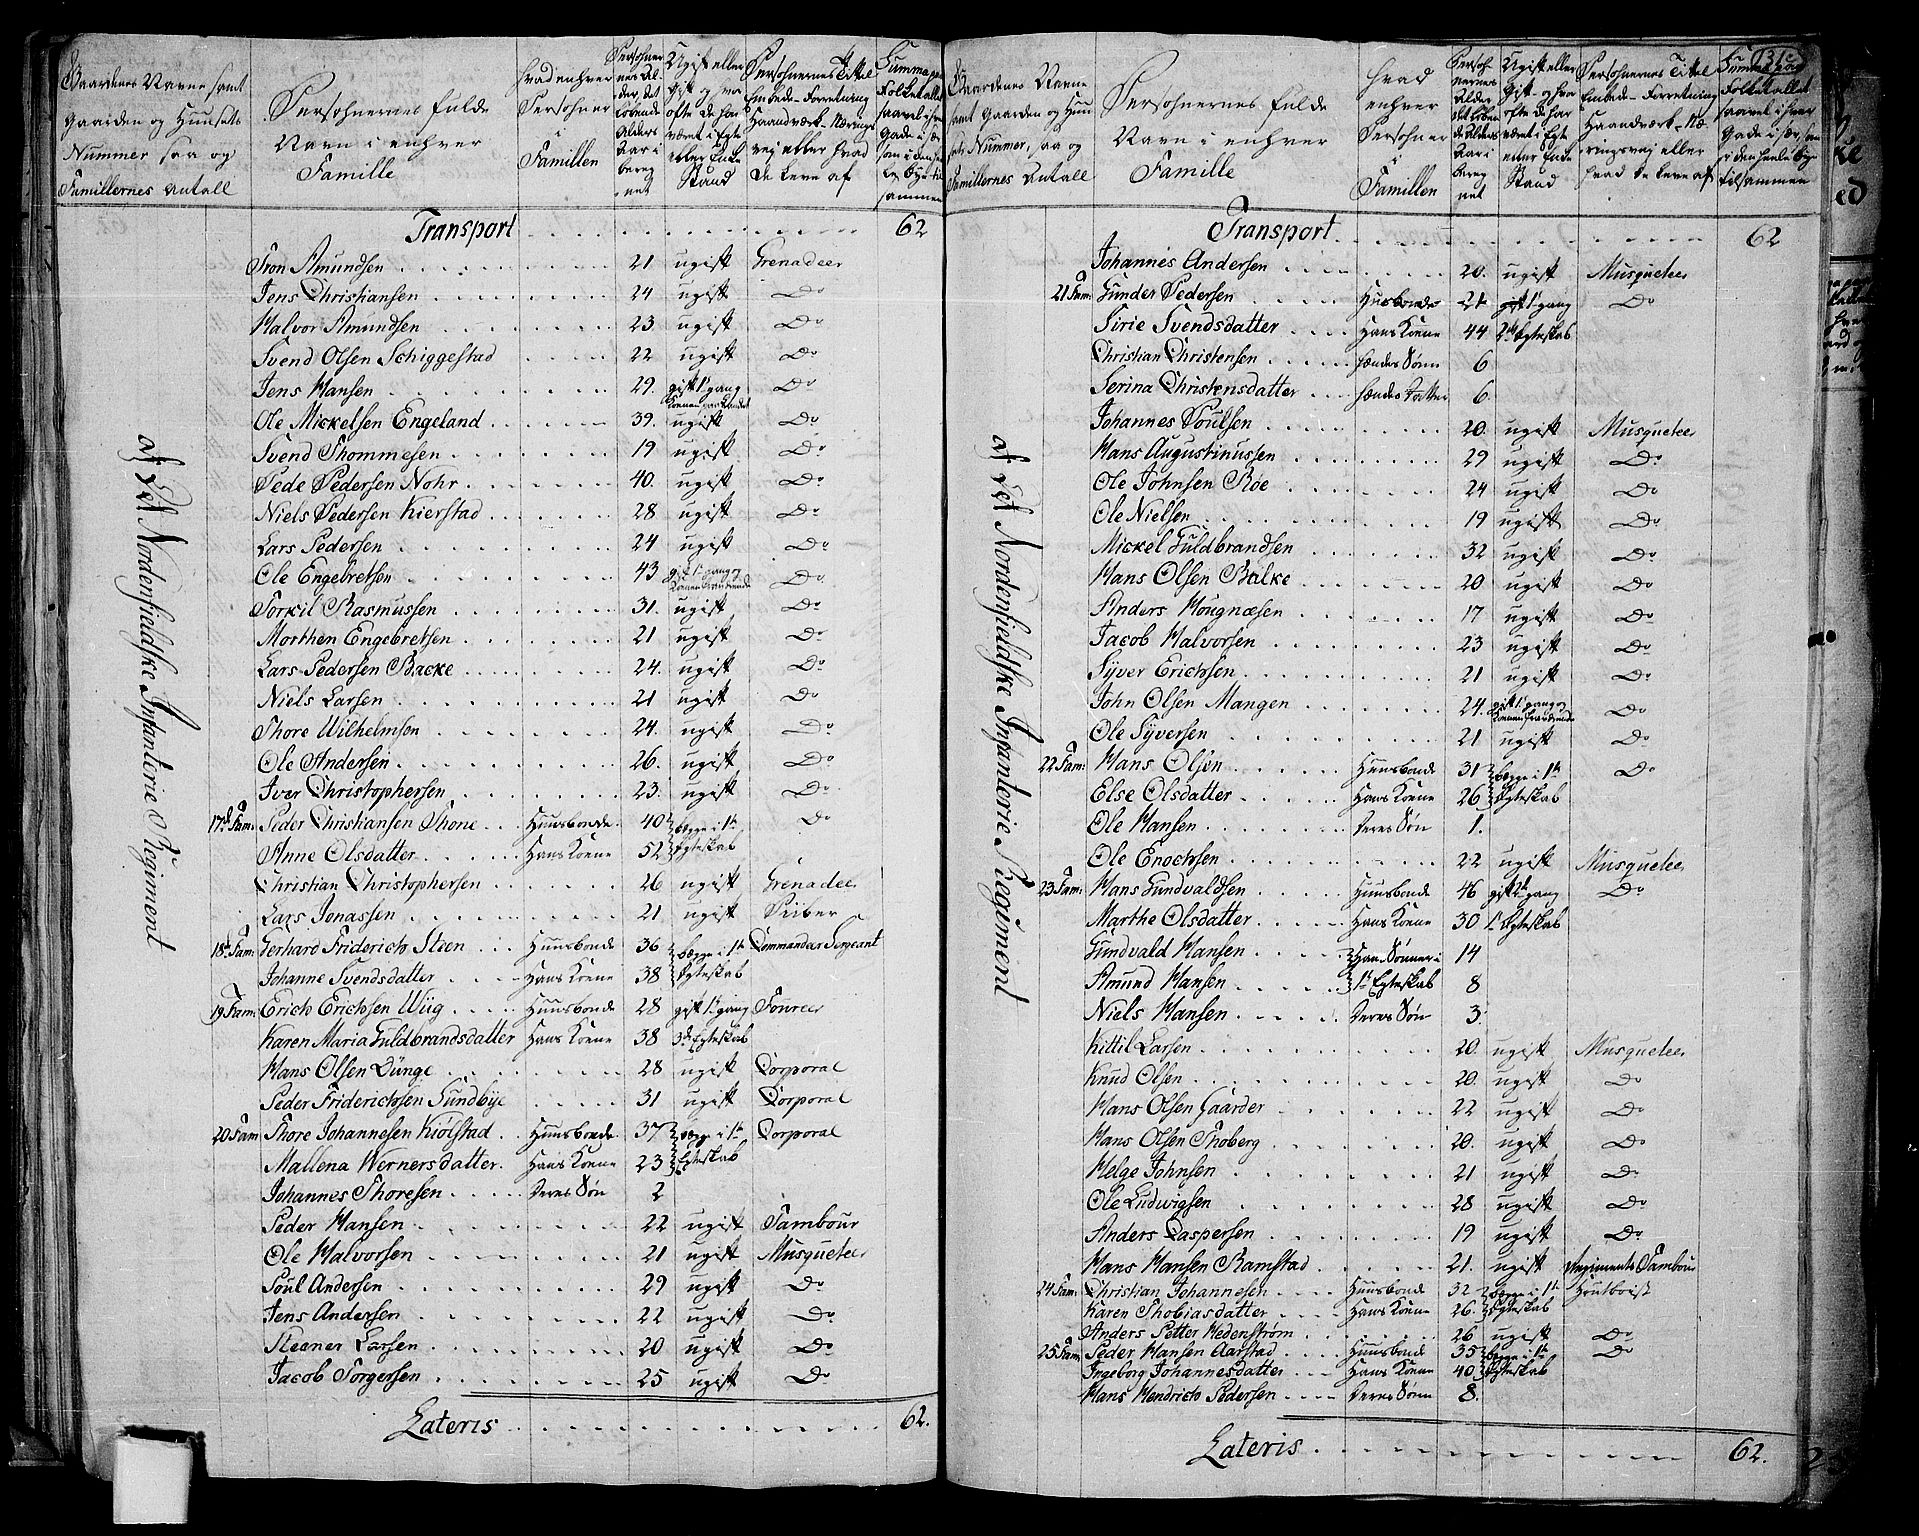 Gaardenes Navne samt
Gaarden og Huusets
Nummer saa og
Famillernes Antall
Personernes fulde
Navn i enhver
Famille
hvad enhver
Persohn er
i
Famillen
Ugift eller
Persohnernes Titel
Embede-Forretning
Haandværk-Nærings
vej eller hvad
De leve af
Transport 62
Jens Christiansen 24 ugift Do
Halvor Amundsen 23 ugift Do
Svend Olsen Schiggestad 22 ugift Do
Jens Hansen 29. gift 1e gang Do
Ole Mickelsen Engeland 39. ugift Do
Svend Thommesen 19 ugift Do
Pede Pedersen Nohr 40. ugift Do
Niels Pedersen Kierstad 28 ugift Do
Lars Pedersen 24 ugift Do
Ole Engebretsen 43 gift 1e gang Do
Torkil Rasmussen 31. ugift Do
Morthen Engebretsen 21 ugift Do
Lars Pedersen Backe 24. ugift Do
Niels Larsen 21 ugift Do
Thore Wilhelmsen 24. ugift Do
Ole Andersen 26. ugift Do
Iver Christophersen 23. ugift Do
17d Fam: Peder Christiansen Thone Huusbonde 40 begge i 1te Do
Anne Olsdatter Hans Kone 52 Egteskab
Christian Christophersen 26 ugift Grenadeer
Lars Jonassen 21 ugift Piiber
18d Fam: Gerhard Friderich Steen Huusbonde 36 begge i 1te Commandeer Sergeant
Johanne Svendsdatter Hans Kone 38 Egteskab
19 Fam: Erich Erichsen Wiig Huusbonde 28 gift 1e gang Foureer
Karen Maria Guldbrandsdatter Hans Kone 38 3de Egteskab
Hans Olsen Lunge 28 ugift Corporal
Peder Friderichsen Sundbye 31 ugift Corporal
20 Fam Thore Johannesen Kiølstad Huusbonde 37 begge i 1te Corporal
Mallena Wernersdatter Hans Kone 23 Egteskab
Johannes Thoresen deres Søn 2
Peder Hansen 22 ugift Tambour
Ole Halvorsen 21 ugift Musqueteer
Poul Andersen 29 ugift Do
Jens Andersen 22 ugift Do
Steener Larsen 20 ugift Do
Jacob Torgersen 25 ugift Do
Lateris 62.
af det Nordenfieldske Infanterie Regiment
Gaardenes Navne
samt Gaarden og Huu
sets Nummer, saa og
Famillernes Antall
Persohnernes fulde
Navn i enhver
Famille
hvad
enhver
Persohn er
i
Famillen
Persohnernes Titel
Embede-Forretning
Haandværk-Næ
ringsvej eller
hvad De leve af
Transport 62
Johannes Andersen 20. ugift Musqueteer
21 Fam: Gunder Pedersen Huusbonde 21 gift 1e gang Do
Sirie Svendsdatter Hans Kone 44 2det Egteskab
Christian Christensen hendes Sønn 6
Serina Christensdatter hendes Datter 6
Johannes Poulsen 20. ugift Musqueteer
Hans Augustinussen 29 ugift Do
Ole Johnsen Røe 24 ugift Do
Ole Nielsen 19 ugift Do
Mickel Guldbrandsen 32 ugift Do
Hans Olsen Balke 20 ugift Do
Anders Hougnæsen 17 ugift Do
Jacob Halvorsen 23 ugift Do
Syver Erichsen 21 ugift Do
John Olsen Mangen 24. gift 1e gang Do
Ole Syversen 21 ugift Do
22 Fam: Hans Olsen Huusbonde 31 begge i 1te Do
Else Olsdatter Hans Kone 26 Egteskab
Ole Hansen deres Søn 1.
Ole Enochsen 22 ugift Musqueteer
23 Fam: Hans Gundvaldsen Huusbonde 46 gift 2d gang Do
Marthe Olsdatter Hans Kone 30 1e Egteskab
Gundvald Hansen Hans Sønner i 14
Amund Hansen 1te Egteskab 8
Niels Hansen deres Søn 3.
Kittil Larsen 20. ugift Musqueteer
Knud Olsen 20. ugift Do
Hans Olsen Gaarder 22 ugift Do
Hans Olsen Thoberg 20. ugift Do
Helge Johnsen 21 ugift Do
Ole Ludwigsen 28 ugift Do
Anders Caspersen 19 ugift Do
Hans Hansen Ramstad 21. ugift Regiments Tambour
24 Fam: Christian Johannesen Huusbonde 32 begge i 1te Houtboist
Karen Thobiasdatter Hans Kone 26. Egteskab
Anders Petter Hedenstrøm 26 ugift Do
25 Fam: Peder Hansen Aarstad Huusbonde 35 begge i 1te Do
Ingeborg Johannesdatter Hans Kone 40 Egteskab
Hans Hendrich Pedersen deres Sønn 8.
Lateris 62.
af det Nordenfieldske Infanterie Regiment